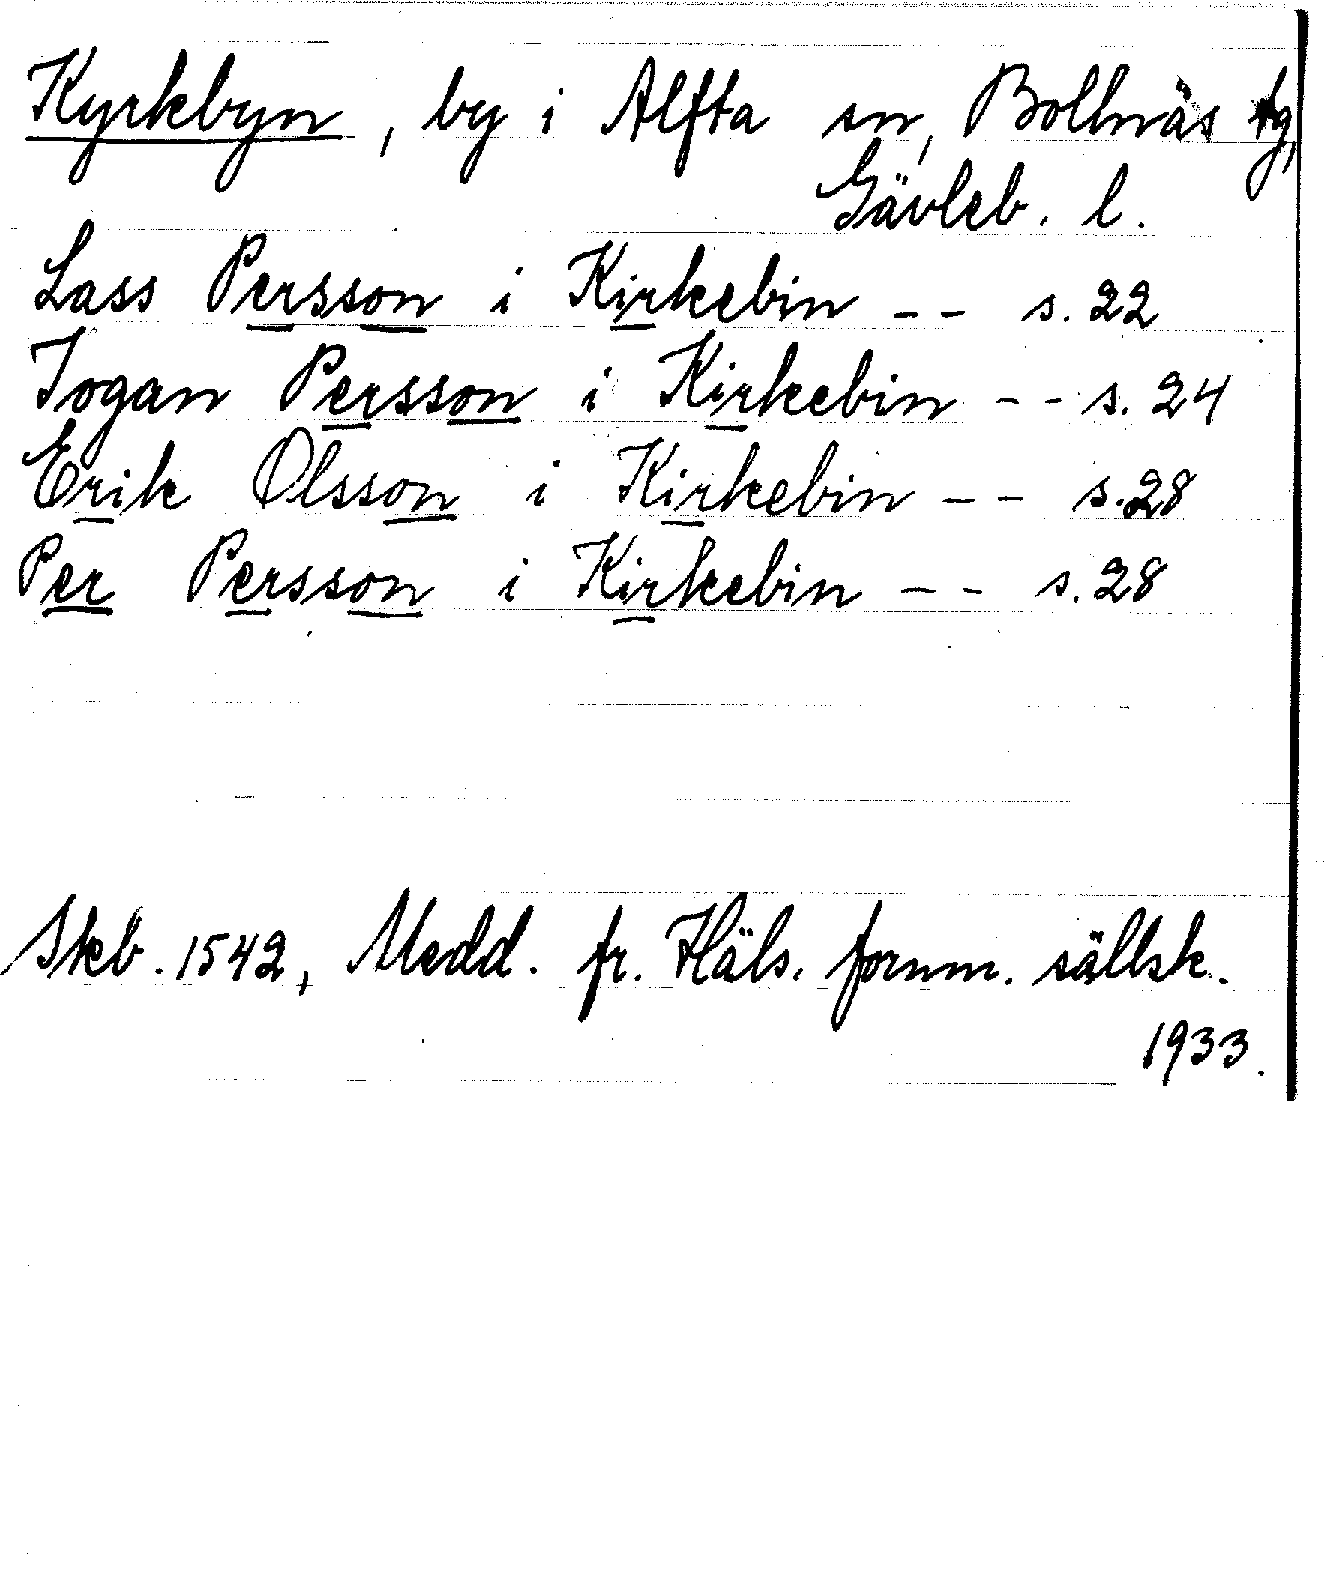 Kyrkbyn, by i Alfta sn, Bollnäs tg,
Gävleb. l.
Lass Persson i Kirkebin -- s. 22
Jogan Persson i Kirkebin -- s. 24
Erik Olsson i Kirkebin -- s. 28
Per Persson i Kirkebin -- s. 28
Skb. 1542, Medd. fr. Häls. fornm. sällsk.
1933.